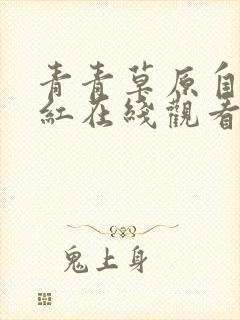 青青草原自
紅在綫觀看
鬼上身